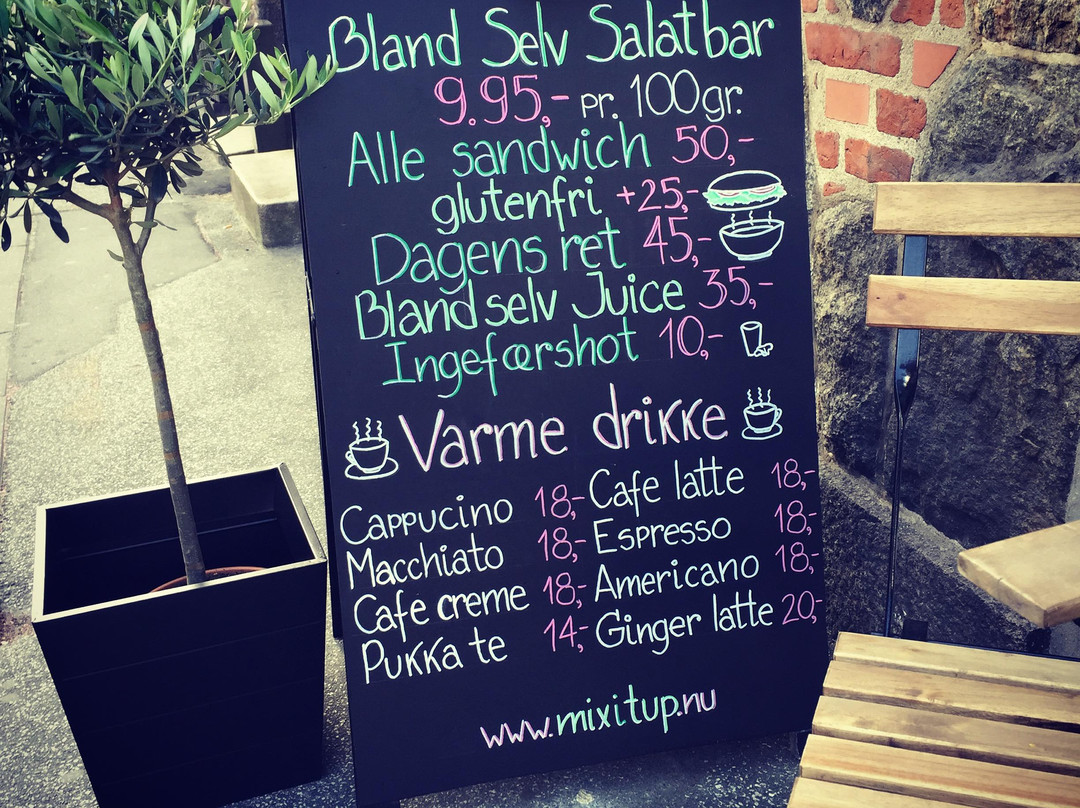 Bland Selv Salatbar
9.95,- pr. 100gr.
Alle sandwich 50,-
glutenfri +25,-
Dagens ret 45,-
Blandselv Juice 35,-
Ingefærshot 10,-
Varme drikke
Cappucino 18,- Cafe latte 18,-
Macchiato 18,- Espresso 18,-
Cafe creme 18,- Americano 18,-
Pukka te 14,- Ginger latte 20,-
www.mixitup.nu